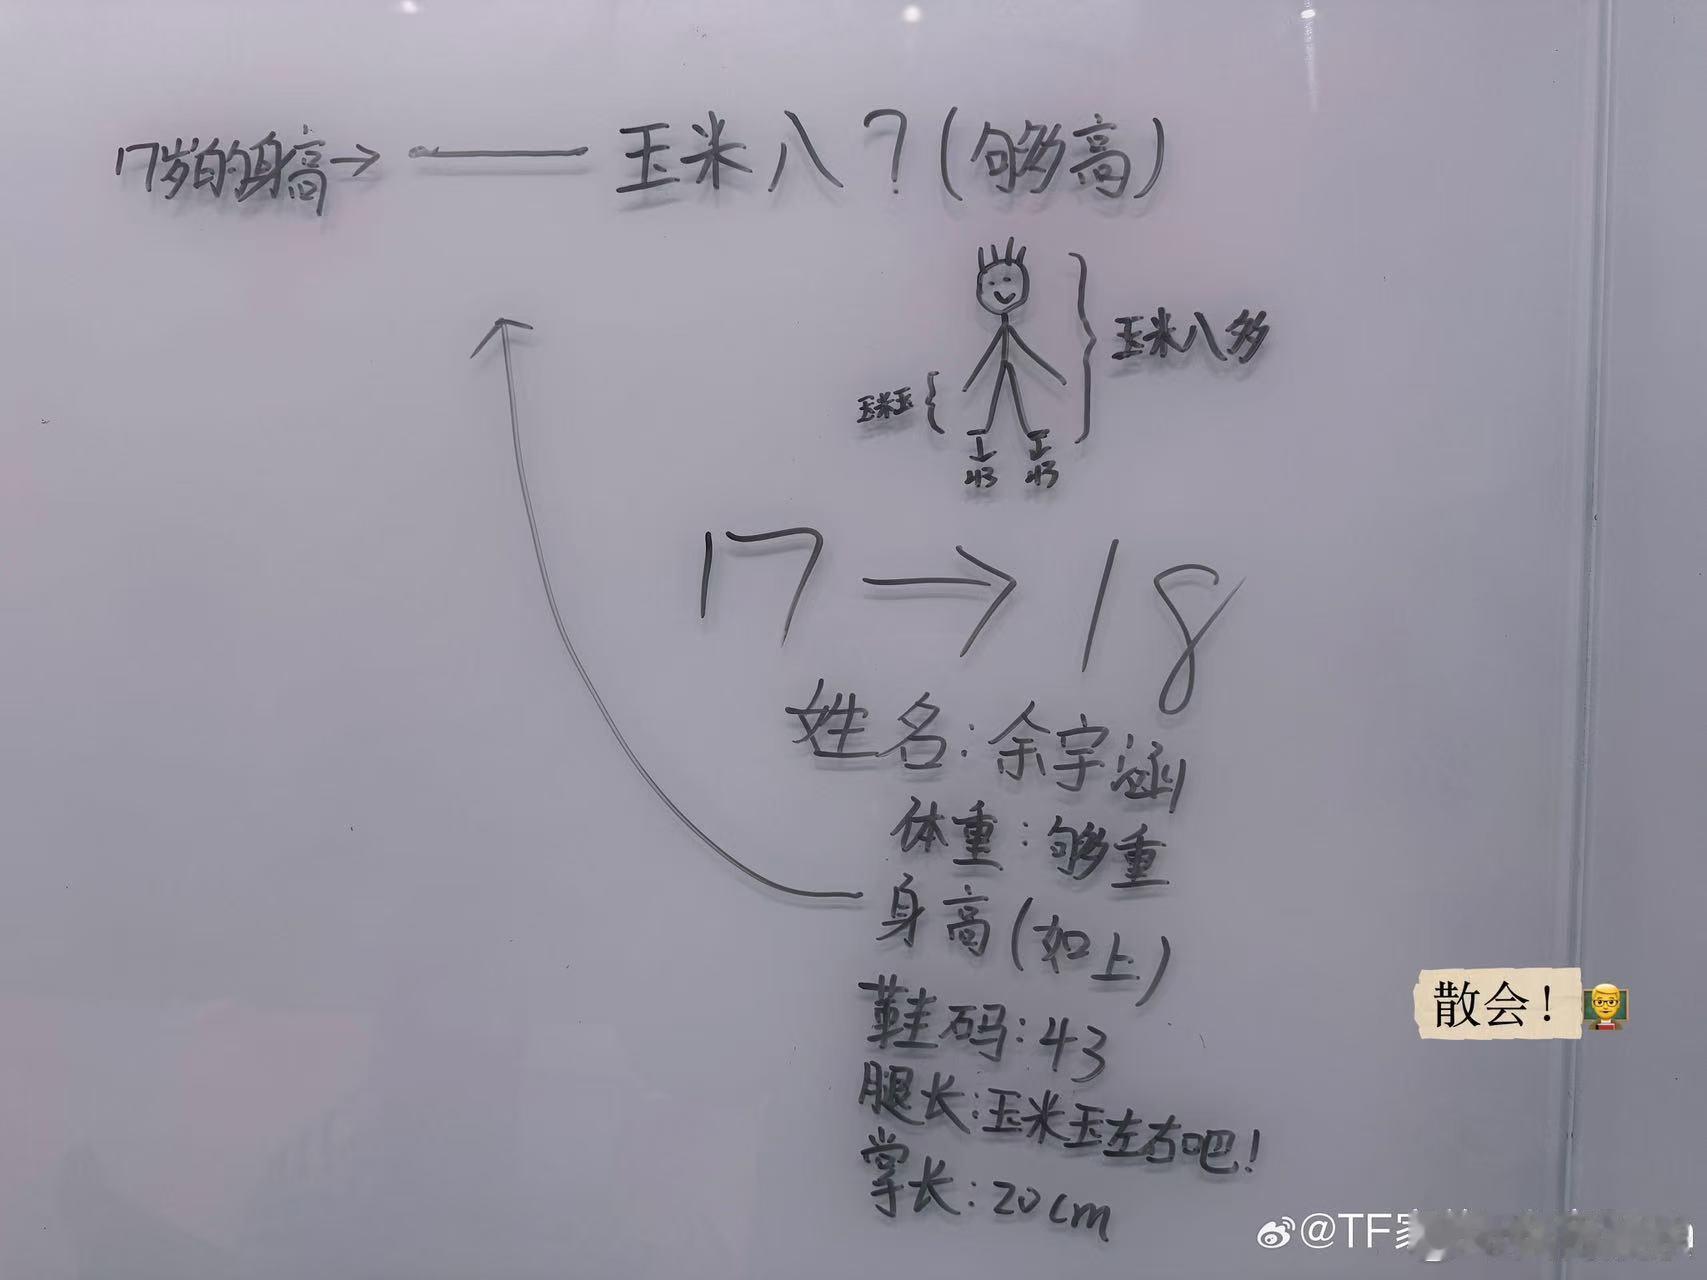 17岁的身高→ —— 玉米八？(够高)
玉米八多
玉米玉
43 43
17→18
姓名:余宇涵
体重:够重
身高(如上)
鞋码:43
腿长:玉米玉左右吧!
掌长:20cm
散会!
@TF家